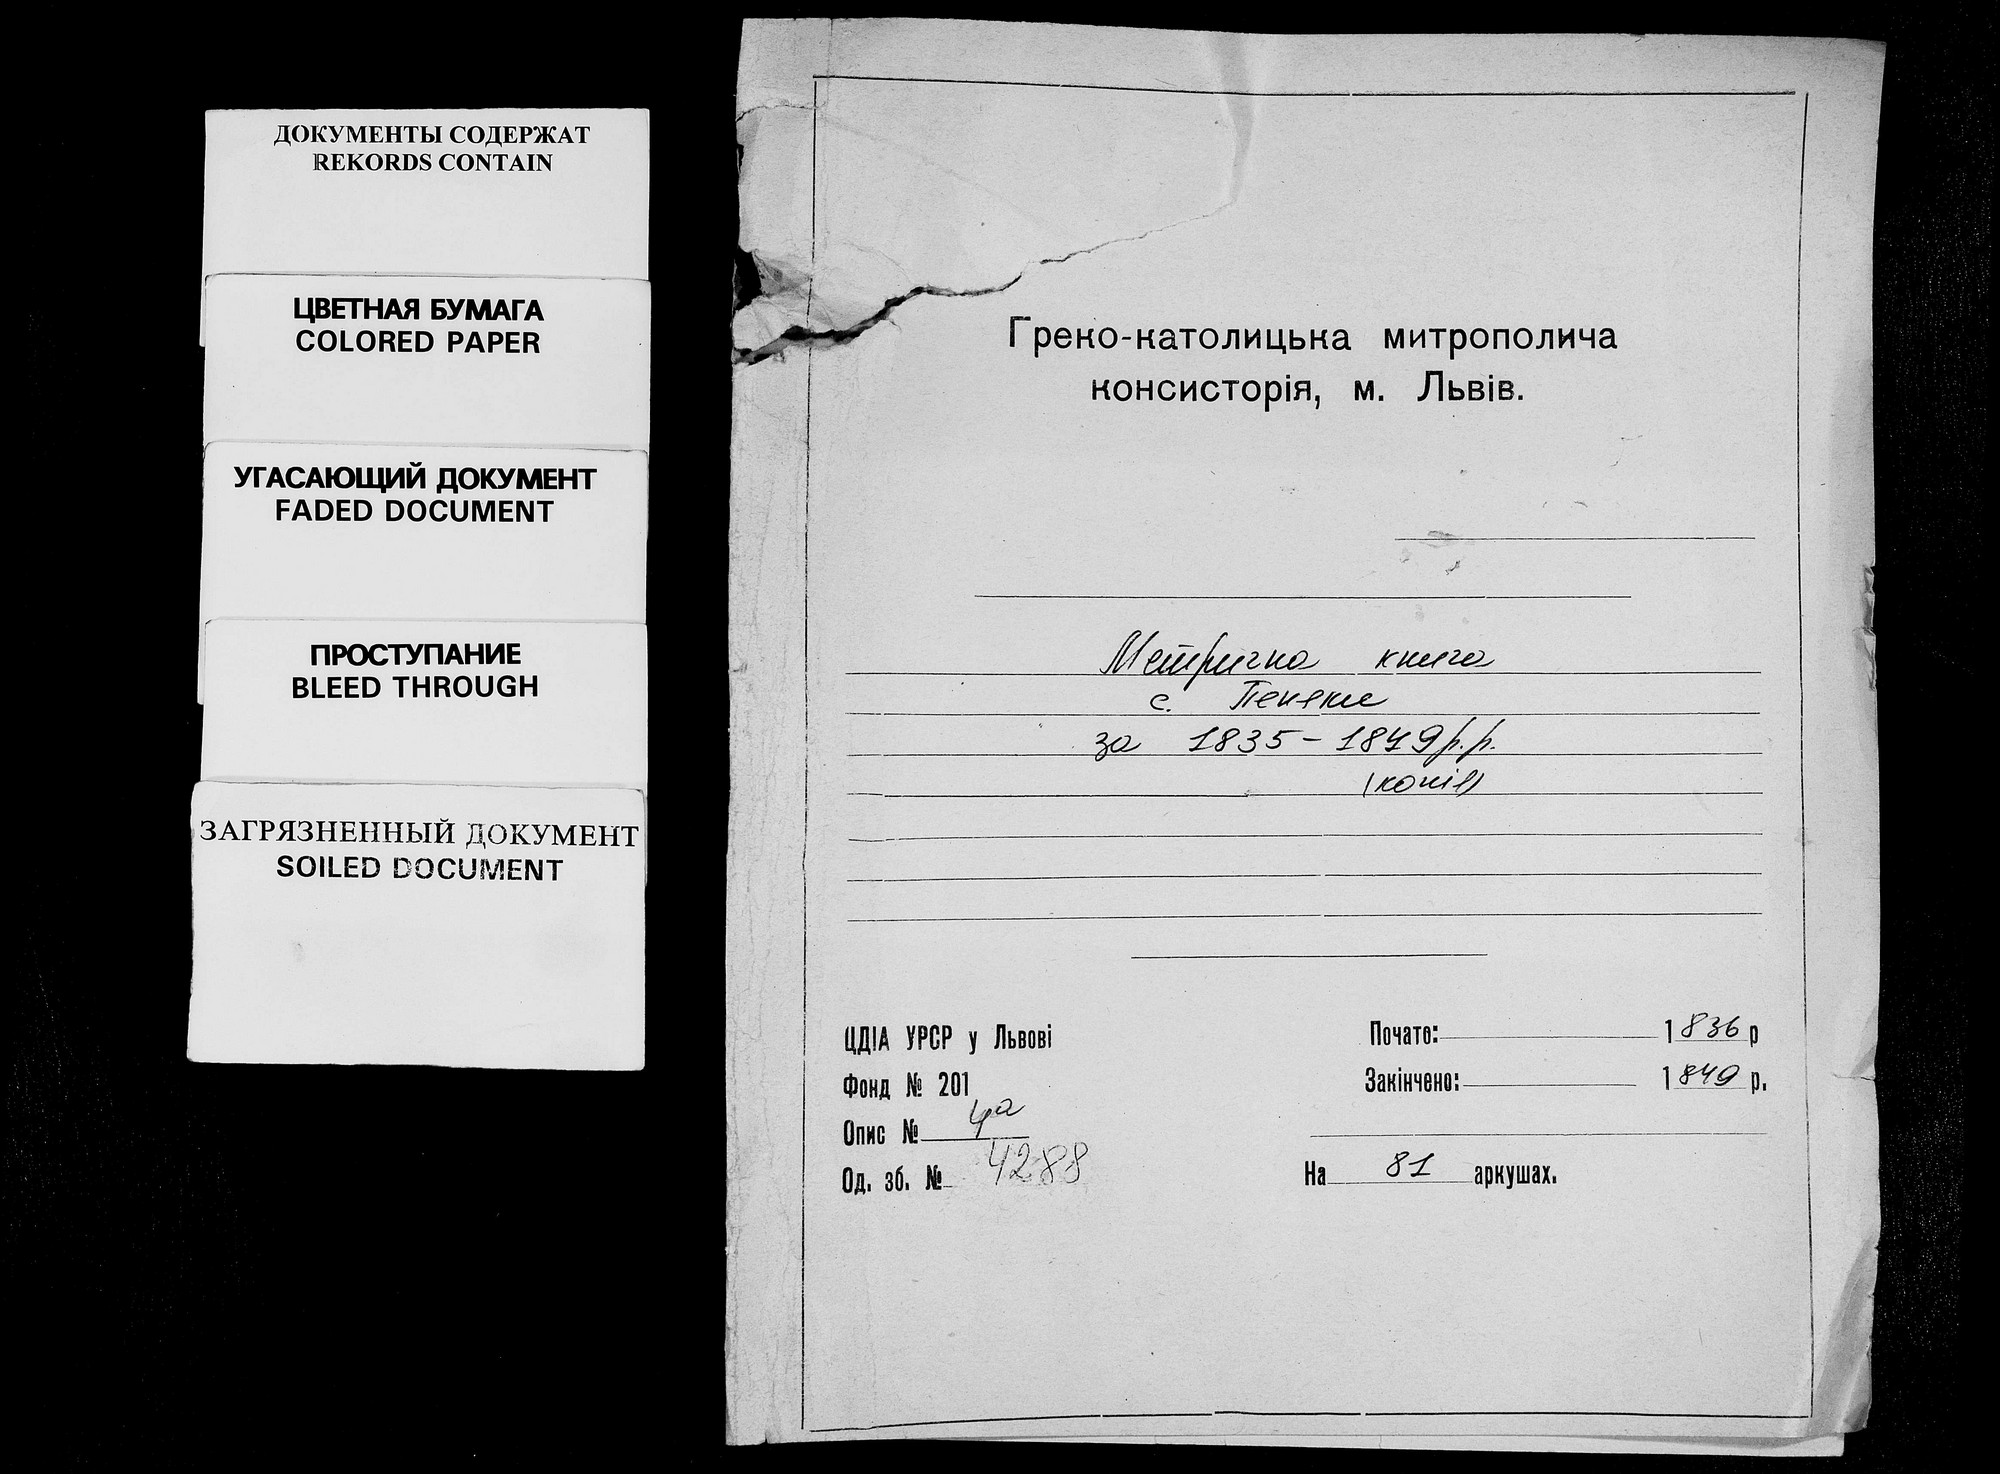 ДОКУМЕНТЫ СОДЕРЖАТ
REKORDS CONTAIN
ЦВЕТНАЯ БУМАГА
COLORED PAPER
УГАСАЮЩИЙ ДОКУМЕНТ
FADED DOCUMENT
ПРОСТУПАНИЕ
BLEED THROUGH
ЗАГРЯЗНЕННЫЙ ДОКУМЕНТ
SOILED DOCUMENT
Греко-католицька митрополича
консисторія, м. Львів.
Метрична книга
с. Пеняки
за 1835-1849 р.р.
(копія)
ЦДІА УРСР у Львові
Фонд № 201
Опис № 4а
Од. зб. № 4288
Почато: 1836 р
Закінчено: 1849 р.
На 81 аркушах.